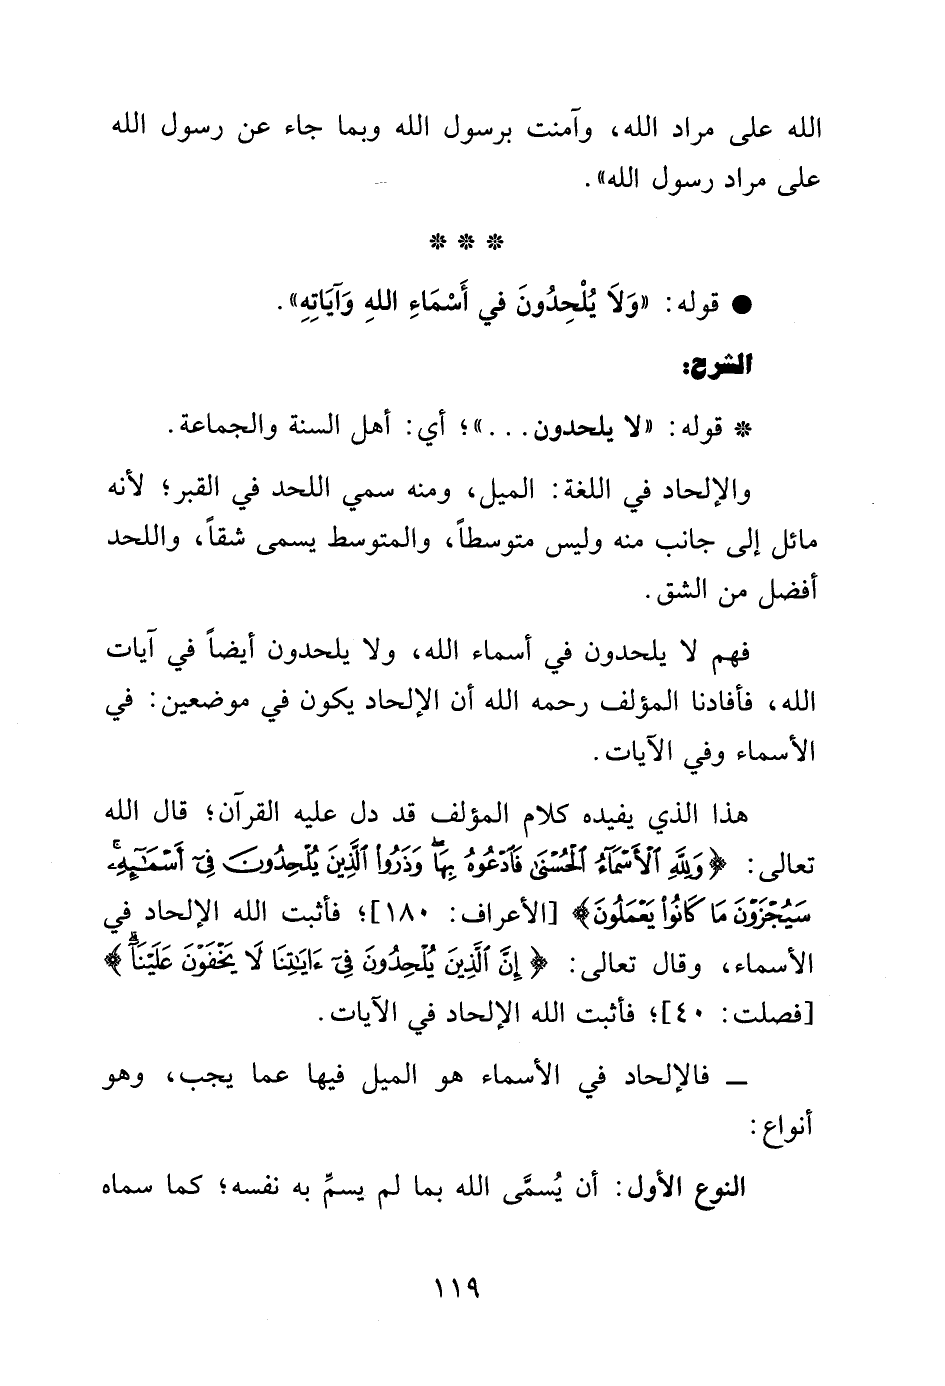 الله على مراد الله، وآمنت برسول الله وبما جاء عن رسول الله
على مراد رسول الله».
* * *
● قوله: «وَلاَ يُلْحِدُونَ في أَسْمَاءِ اللهِ وَآيَاتِهِ».
الشرح:
* قوله: «لا يلحدون...»؛ أي: أهل السنة والجماعة.
والإلحاد في اللغة: الميل، ومنه سمي اللحد في القبر؛ لأنه
مائل إلى جانب منه وليس متوسطاً، والمتوسط يسمى شقاً، واللحد
أفضل من الشق.
فهم لا يلحدون في أسماء الله، ولا يلحدون أيضاً في آيات
الله، فأفادنا المؤلف رحمه الله أن الإلحاد يكون في موضعين: في
الأسماء وفي الآيات.
هذا الذي يفيده كلام المؤلف قد دل عليه القرآن؛ قال الله
تعالى: ﴿وَلِلَّهِ ٱلْأَسْمَآءُ ٱلْحُسْنَىٰ فَٱدْعُوهُ بِهَاۖ وَذَرُوا۟ ٱلَّذِينَ يُلْحِدُونَ فِىٓ أَسْمَٰٓئِهِۦۚ
سَيُجْزَوْنَ مَا كَانُوا۟ يَعْمَلُونَ﴾ [الأعراف: ١٨٠]؛ فأثبت الله الإلحاد في
الأسماء، وقال تعالى: ﴿إِنَّ ٱلَّذِينَ يُلْحِدُونَ فِىٓ ءَايَٰتِنَا لَا يَخْفَوْنَ عَلَيْنَآۗ﴾
[فصلت: ٤٠]؛ فأثبت الله الإلحاد في الآيات.
ــ فالإلحاد في الأسماء هو الميل فيها عما يجب، وهو
أنواع:
النوع الأول: أن يُسمَّى الله بما لم يسمِّ به نفسه؛ كما سماه
١١٩